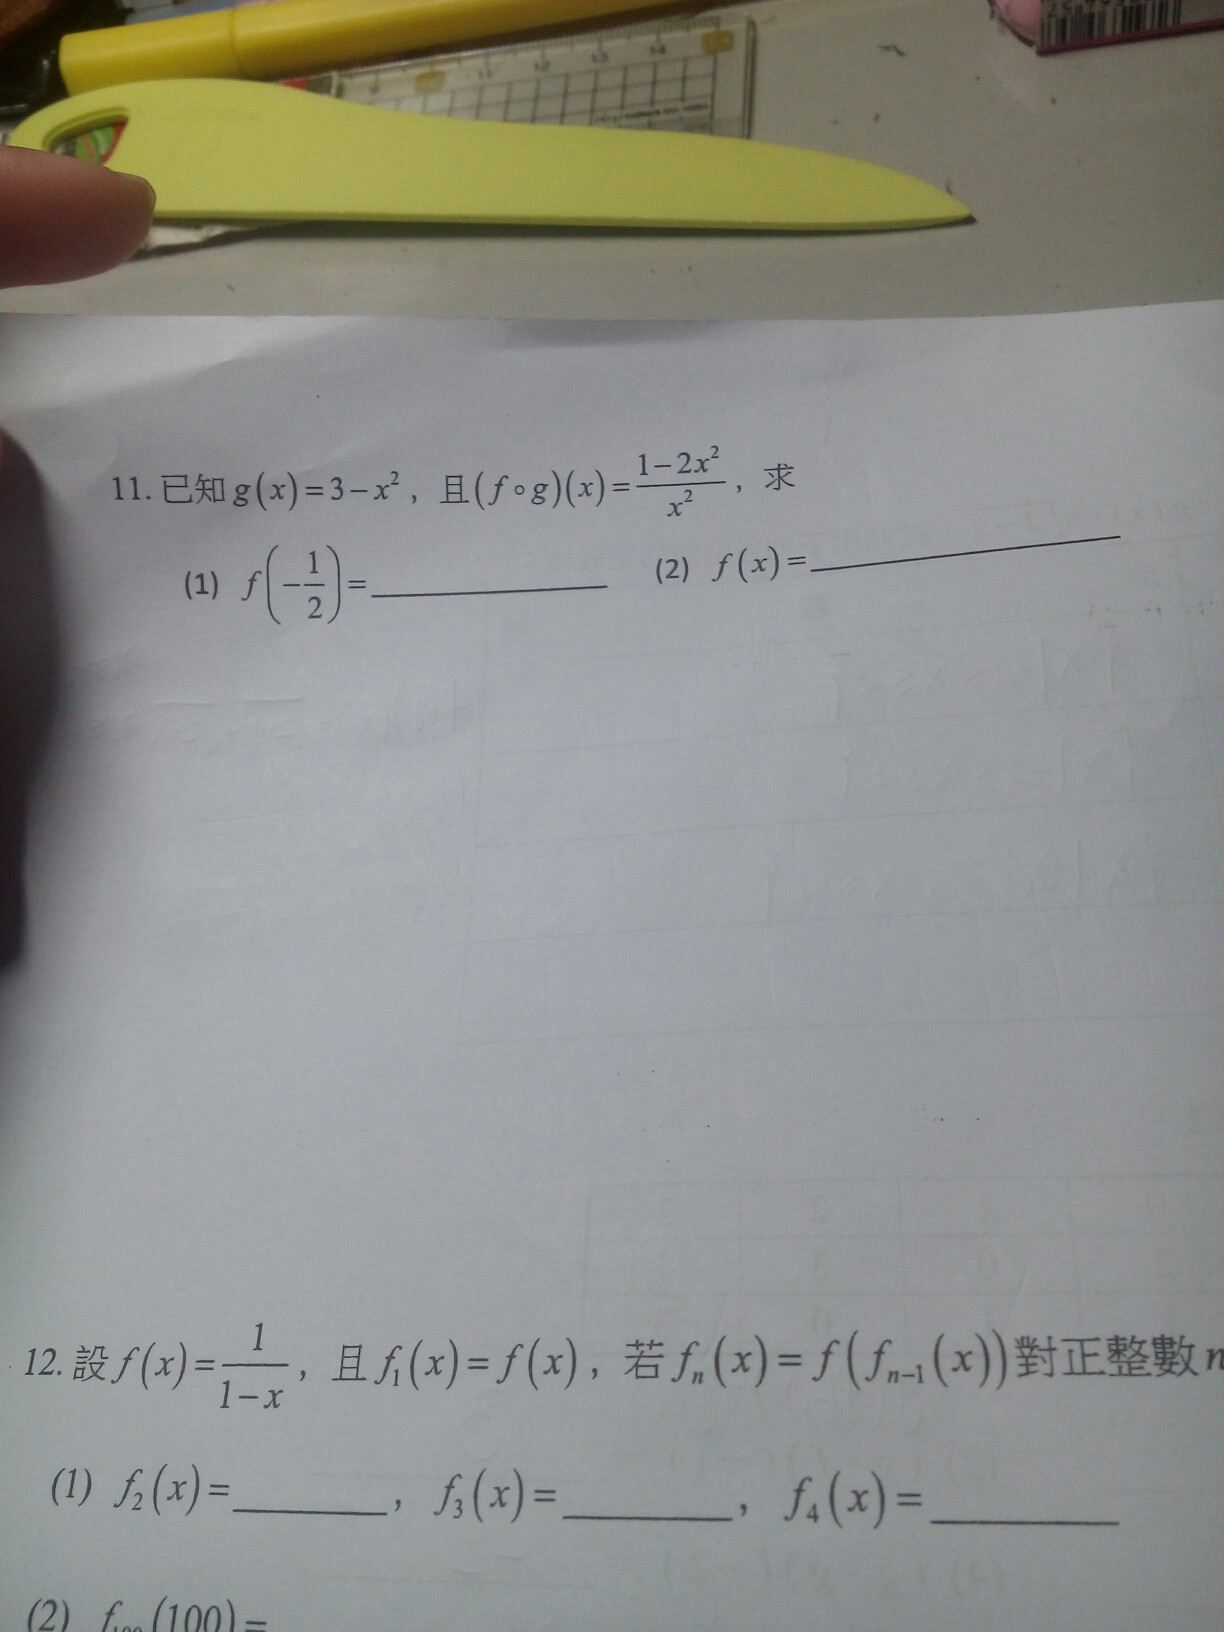 11 12 13 14
11. 已知 g(x)=3-x²，且(f∘g)(x)=\frac{1-2x²}{x²}，求
(1) f(-\frac{1}{2})=________ (2) f(x)=________
12. 設 f(x)=\frac{1}{1-x}，且 f₁(x)=f(x)，若 fₙ(x)=f(fₙ₋₁(x))對正整數 n
(1) f₂(x)=________，f₃(x)=________，f₄(x)=________
(2) f₁₀₀(100)=